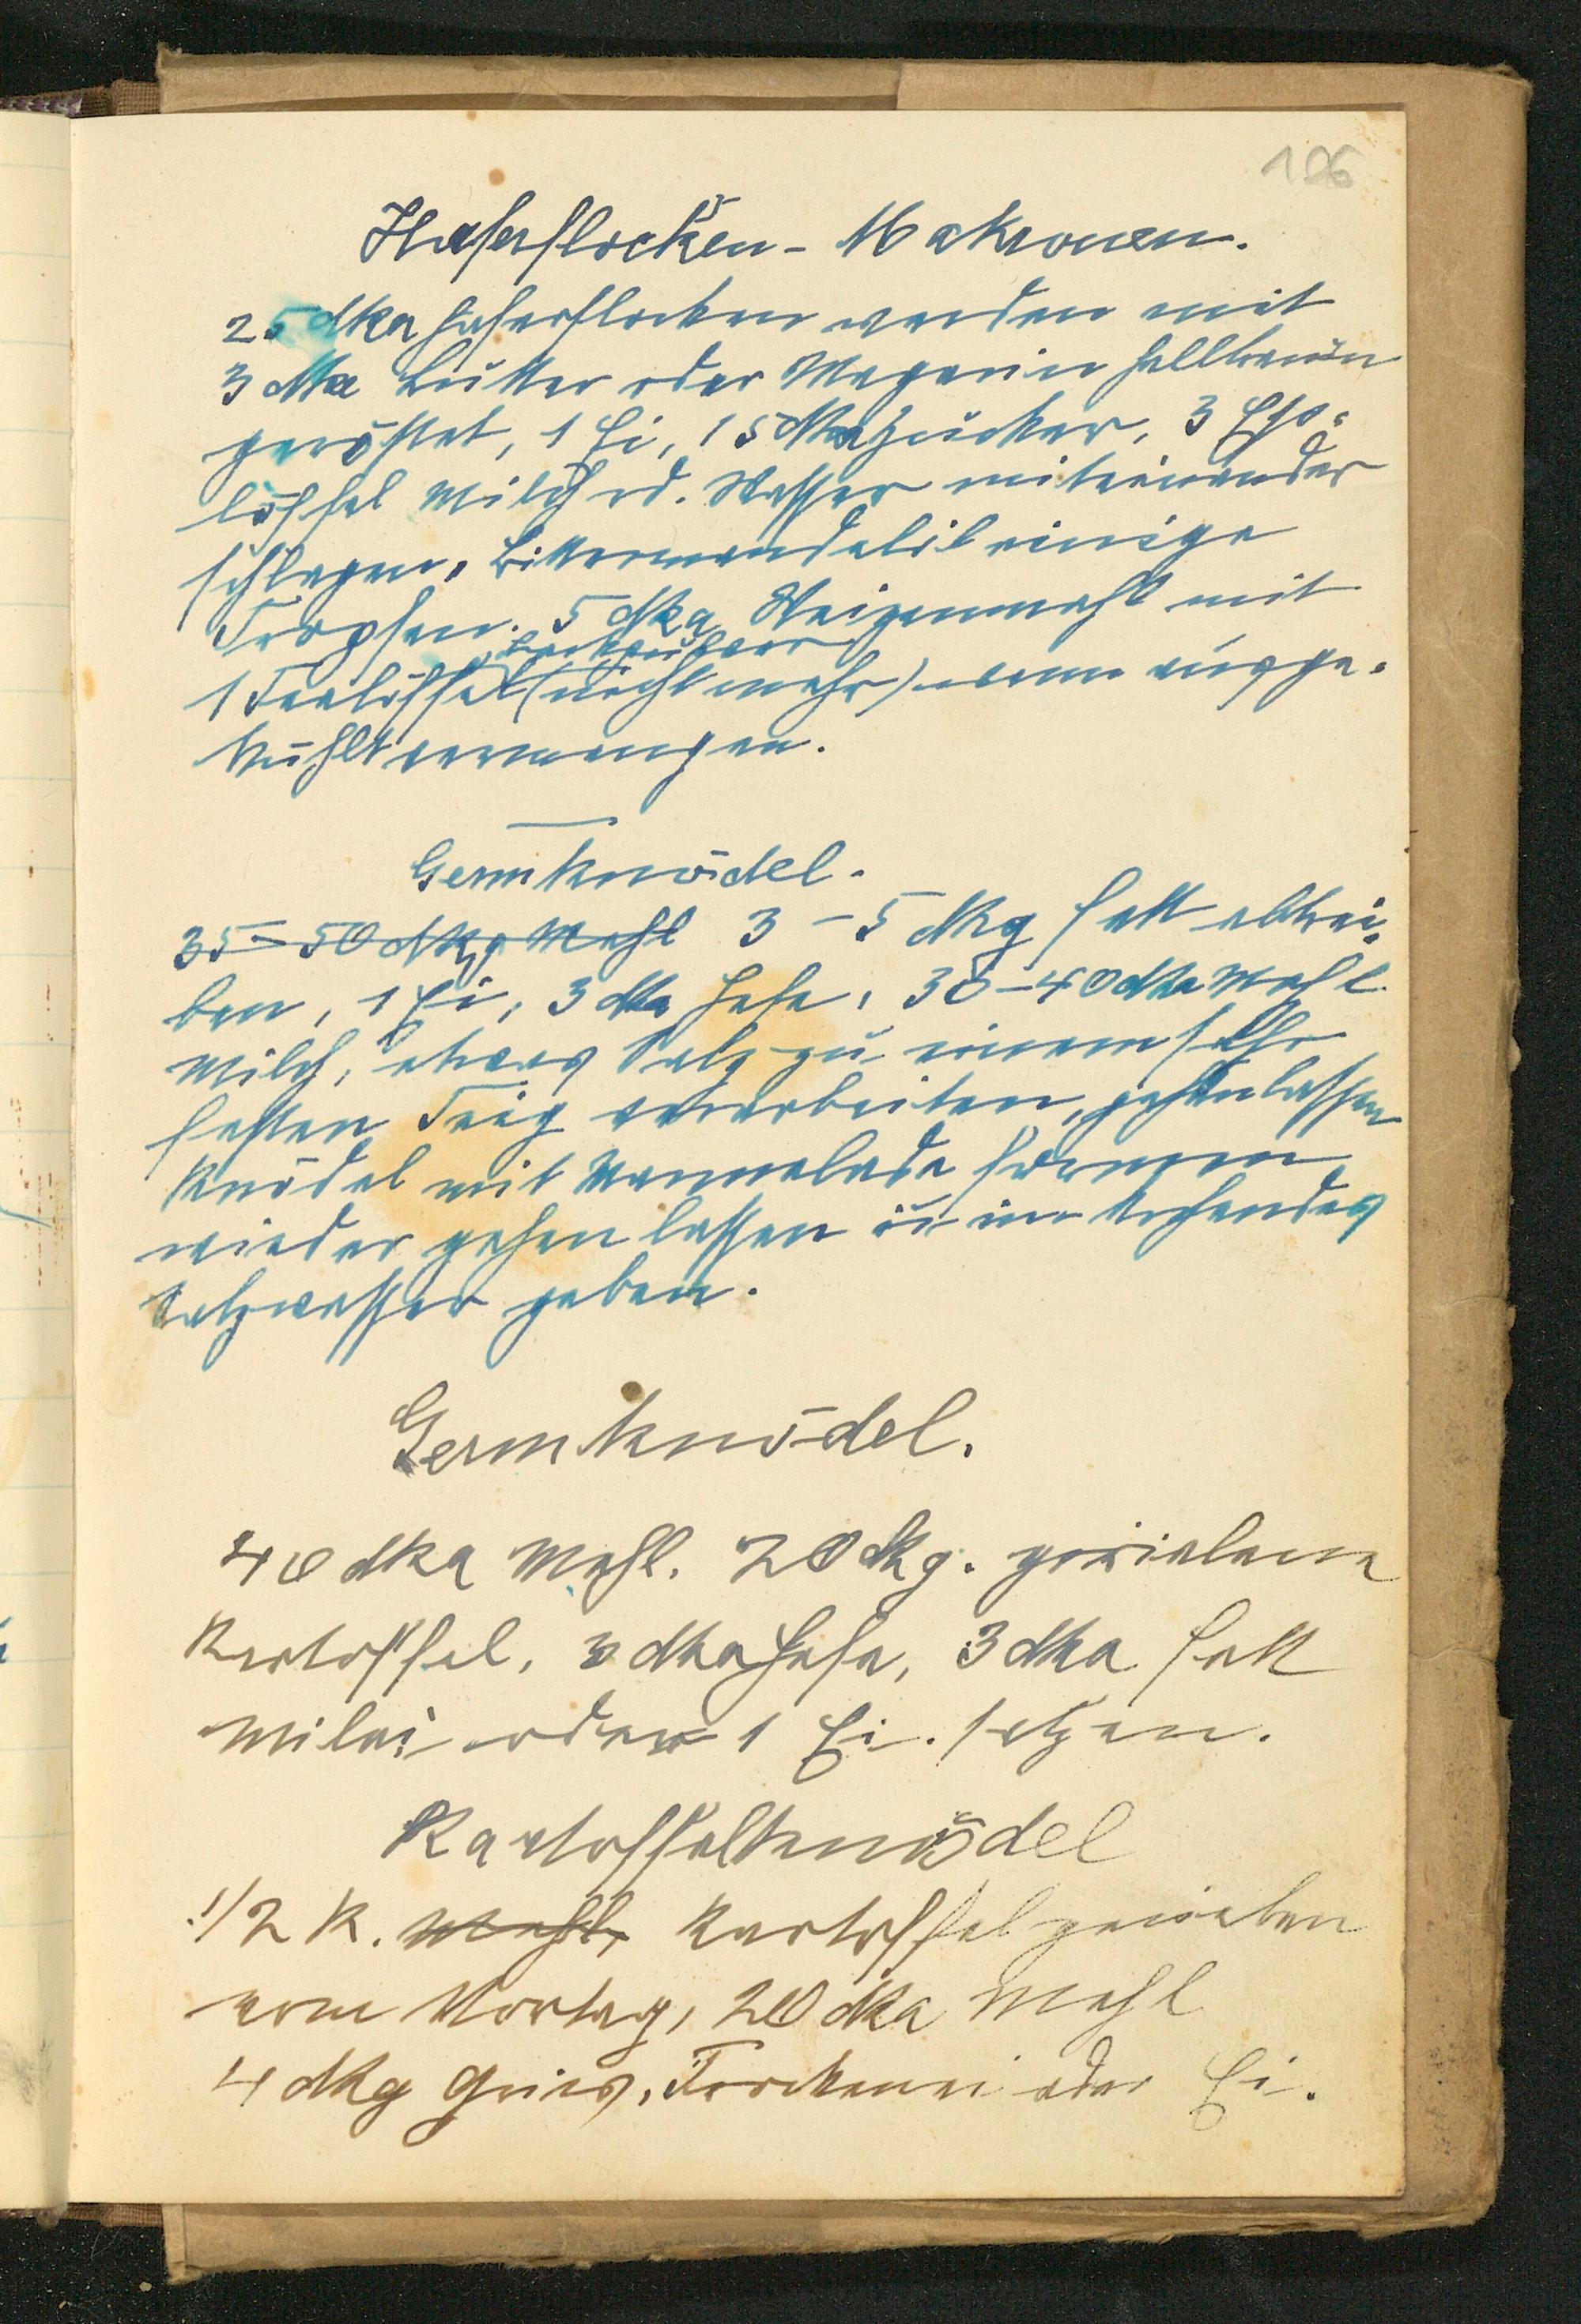 106
Haferflocken - Makronen.
25 dka Haferflocken werden mit
3 dka Butter oder Magarin hellbraun
geröstet, 1 Ei, 15 dka Zucker, 3 Ess-
löffel Milch od. Wasser miteinander
schlagen, Bittermandelöl einige
Tropfen. 5 dka Weizenmehl mit
Backpulver
1 Teelöffel (nicht mehr) wenn ausge-
kühlt vermengen.
Germknödel.
35–50 dkg Mehl 3–5 dkg Fett abtrei-
ben, 1 Ei, 3 dka Hefe, 30–40 dka Mehl
Milch, etwas Salz zu einem sehr
festen Teig verarbeiten, gehenlassen
Knödel mit Marmelade formen
wieder gehen lassen u. in kochendes
Salzwasser geben.
Germknödel.
40 dka Mehl. 20 dkg.
Kartoffel, 3 dka Hefe, 3 dka Fett
Milei oder 1 Ei. salzen.
Kartoffelknödel
1/2 K. Mehl, Kartoffel gerieben
vom Vortag, 20 dka Mehl
4 dkg Gries, Trockenei oder Ei.